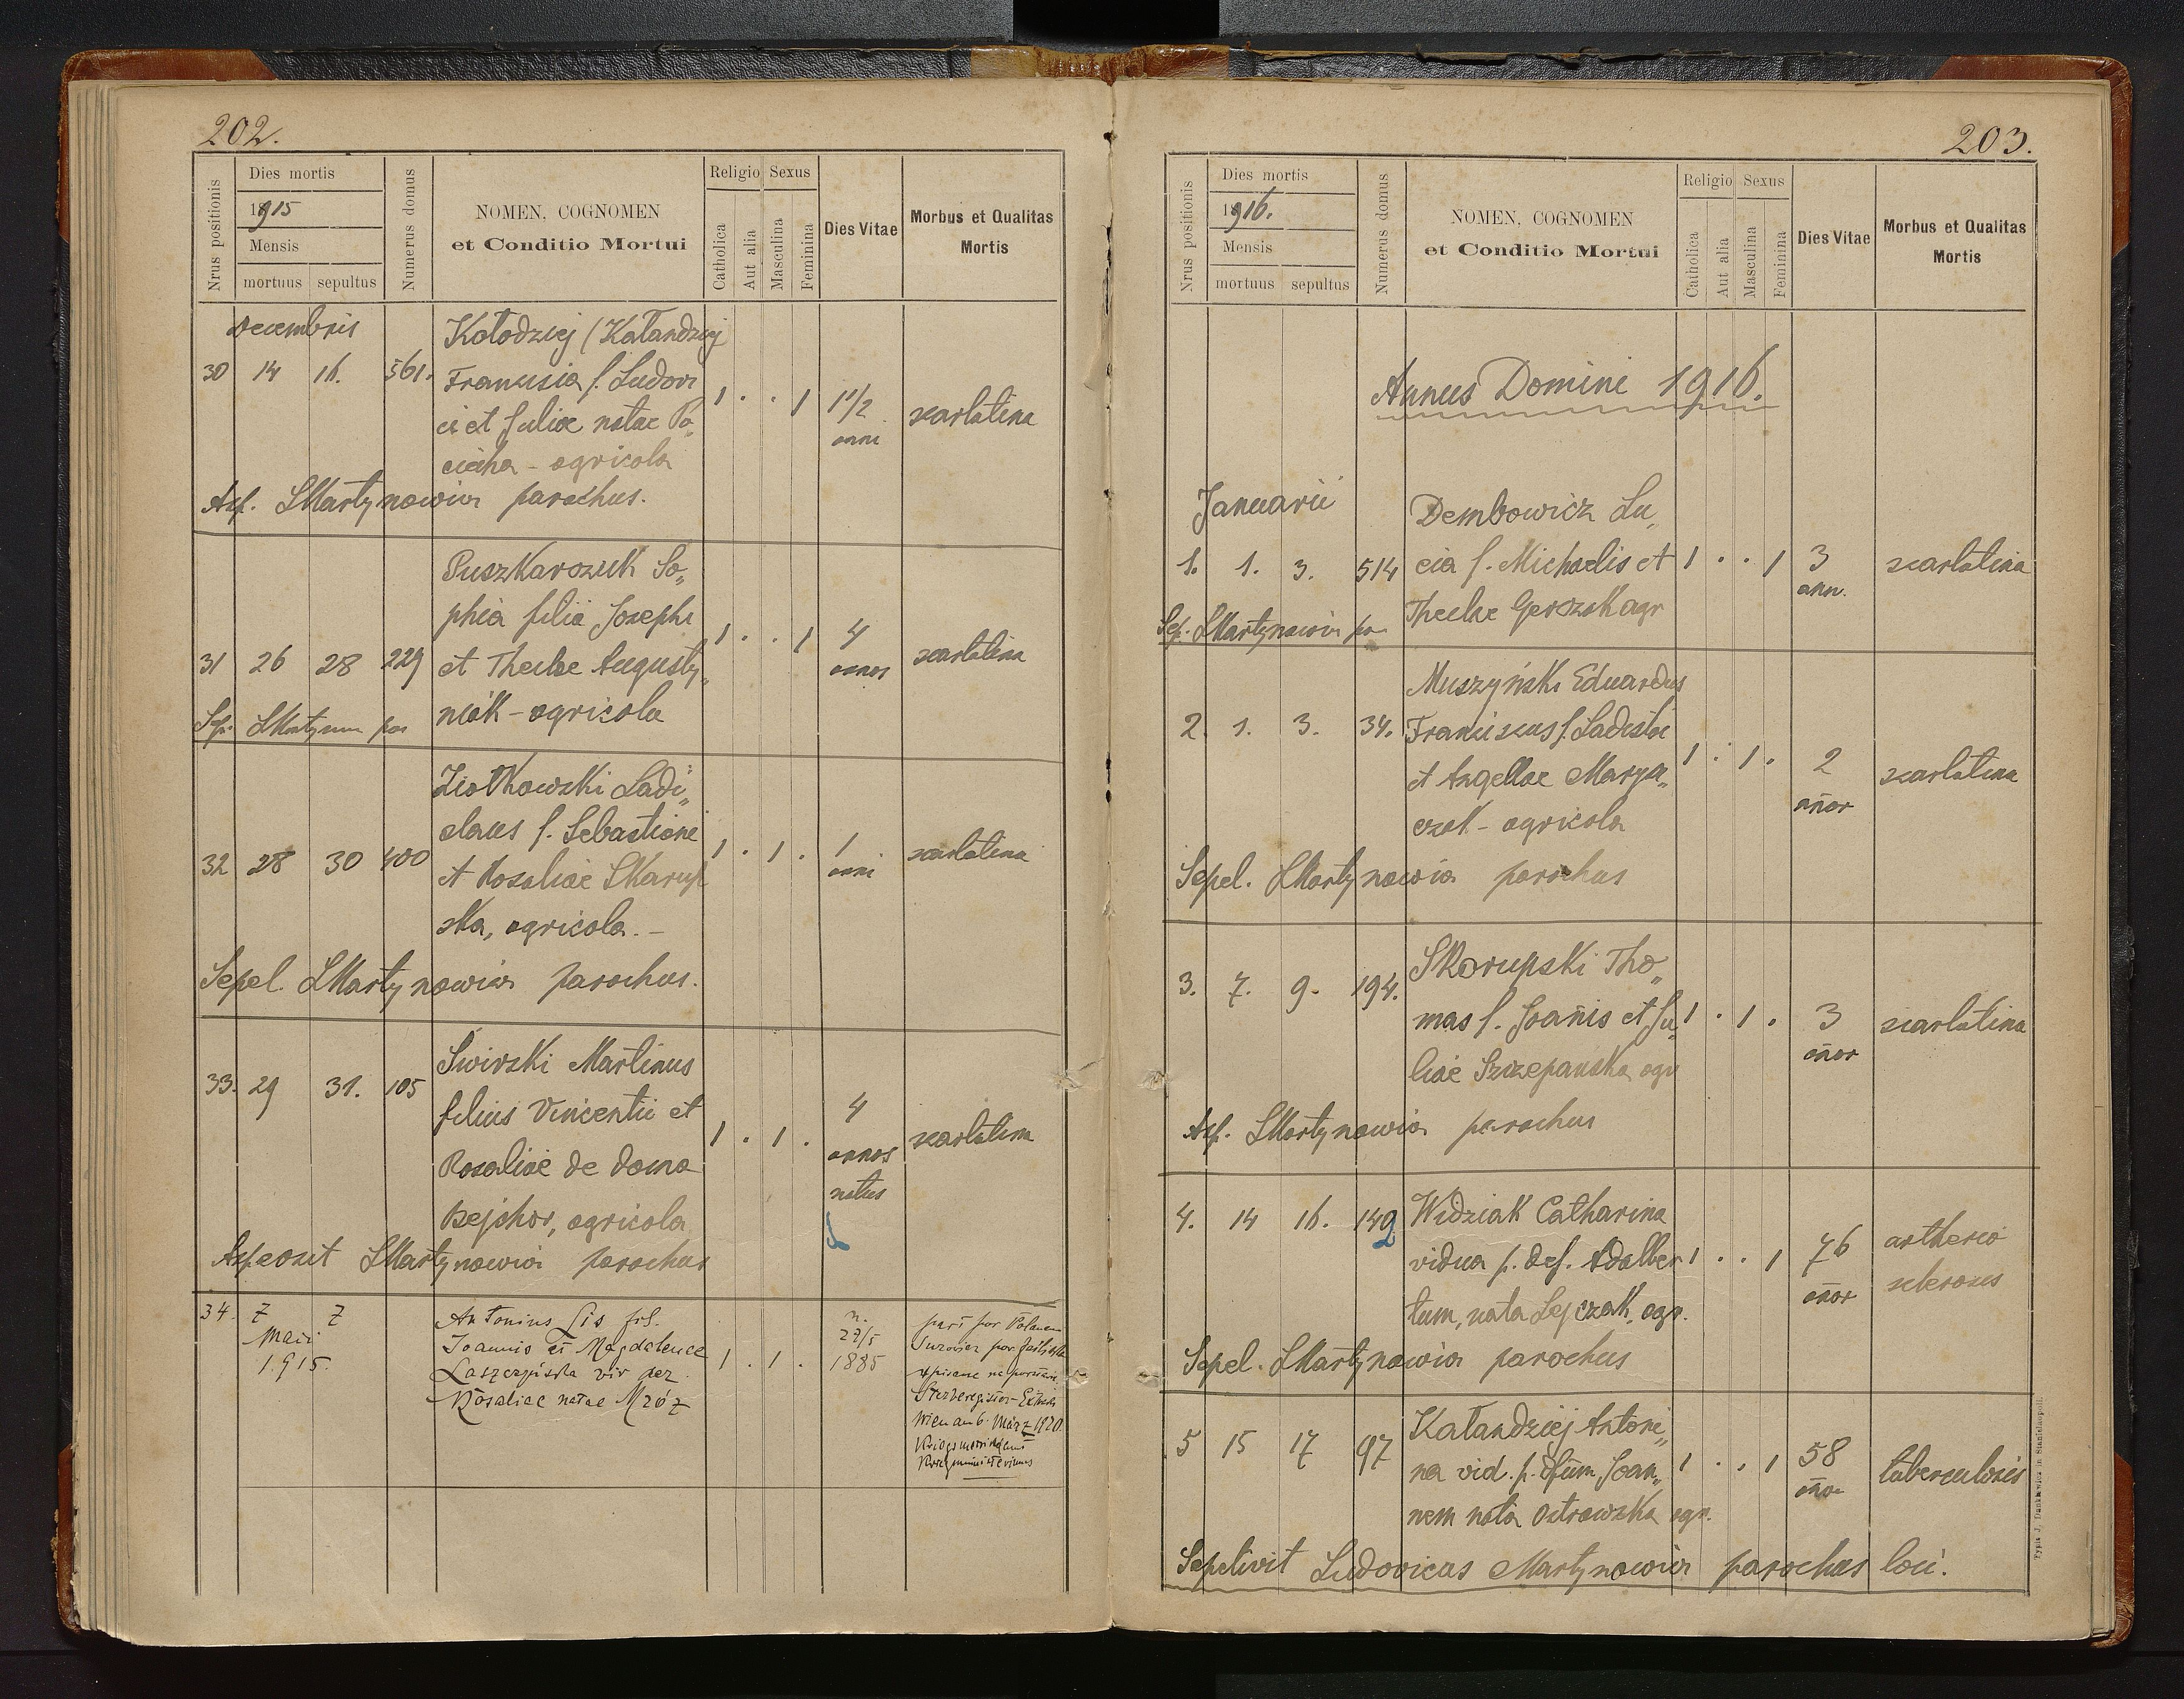 202.
Nrus positionis
Dies mortis
1915
Mensis
mortuus sepultus
Numerus domus
NOMEN, COGNOMEN
et Conditio Mortui
Religio Sexus
Catholica
Aut alia
Masculina
Feminina
Dies Vitae
Morbus et Qualitas
Mortis
Decembris
Kołodziej (Kałandziej
30 14 16. 561. Francisia f. Ludovi
ci et Juliae natae Po„
1 . . 1 1 1/2 scarlatina
anni
ciecha - agricola
Asp. LMartynowicz parochus.
Puszkarczuk So„
phia filia Josephi
1 . . 1 4
31 26 28 229 et Theclae Augusty„
annos scarlatina
niak - agricola
Sep. LMartynow par
Ziółkowski Ladi„
slaus f. Sebastiani
32 28 30 400 et Rosaliae Skarup
1 . 1 . 1 scarlatina
anni
ska, agricola. -
Sepel. LMartynowicz parochus.
Świrski Martinus
33. 29 31. 105 filius Vincentii et
1 . 1 . 4 scarlatina
annos
natus
Rosaliae de domo
Bejchor, agricola
Aspersit LMartynowicz parochus
34. 7 7 Antonius Lis fil.
Maii Joannis et Magdalenae
1915. Łaszczyńska vir per
Rosaliae natae Mróz
1 . 1 .
n.
27/5
1885
Wien am 6. März 1920.
203.
Nrus positionis
Dies mortis
1916.
Mensis
mortuus sepultus
Numerus domus
NOMEN, COGNOMEN
et Conditio Mortui
Religio Sexus
Catholica
Aut alia
Masculina
Feminina
Dies Vitae
Morbus et Qualitas
Mortis
Annus Domini 1916.
Januarii Dembowicz Lu„
1. 1. 3. 514 cia f. Michaelis et 1 . . 1 3 scarlatina
ann.
Theclae Gerszak agr
Sep. LMartynowicz par
Muszyński Eduardus
2. 1. 3. 34. Franciscus f. Ladislai
et Angellae Marya„
1 . 1 . 2 scarlatina
añor
czak - agricola
Sepel. LMartynowicz parochus
Skorupski Tho„
3. 7. 9. 194. mas f. Joañis et Ju„
1 . 1 . 3 scarlatina
añor
liae Szczepańska agr
Asp. LMartynowicz parochus
4. 14 16. 149 Widziak Catharina
2
vidua p. def. Adalber 1 . . 1 76 artherio
añor sclerosis
tum, nata Lejczak, agr.
Sepel. LMartynowicz parochus
5 15 17 97 Kałandziej Antoni„
na vid. p. dfum Joan„ 1 . . 1 58 tuberculosis
añor
nem nata Ostrowska agr.
Sepelivit Ludovicus Martynowicz parochus loci.
Typis J. Dankiewicz in Stanislaopoli.